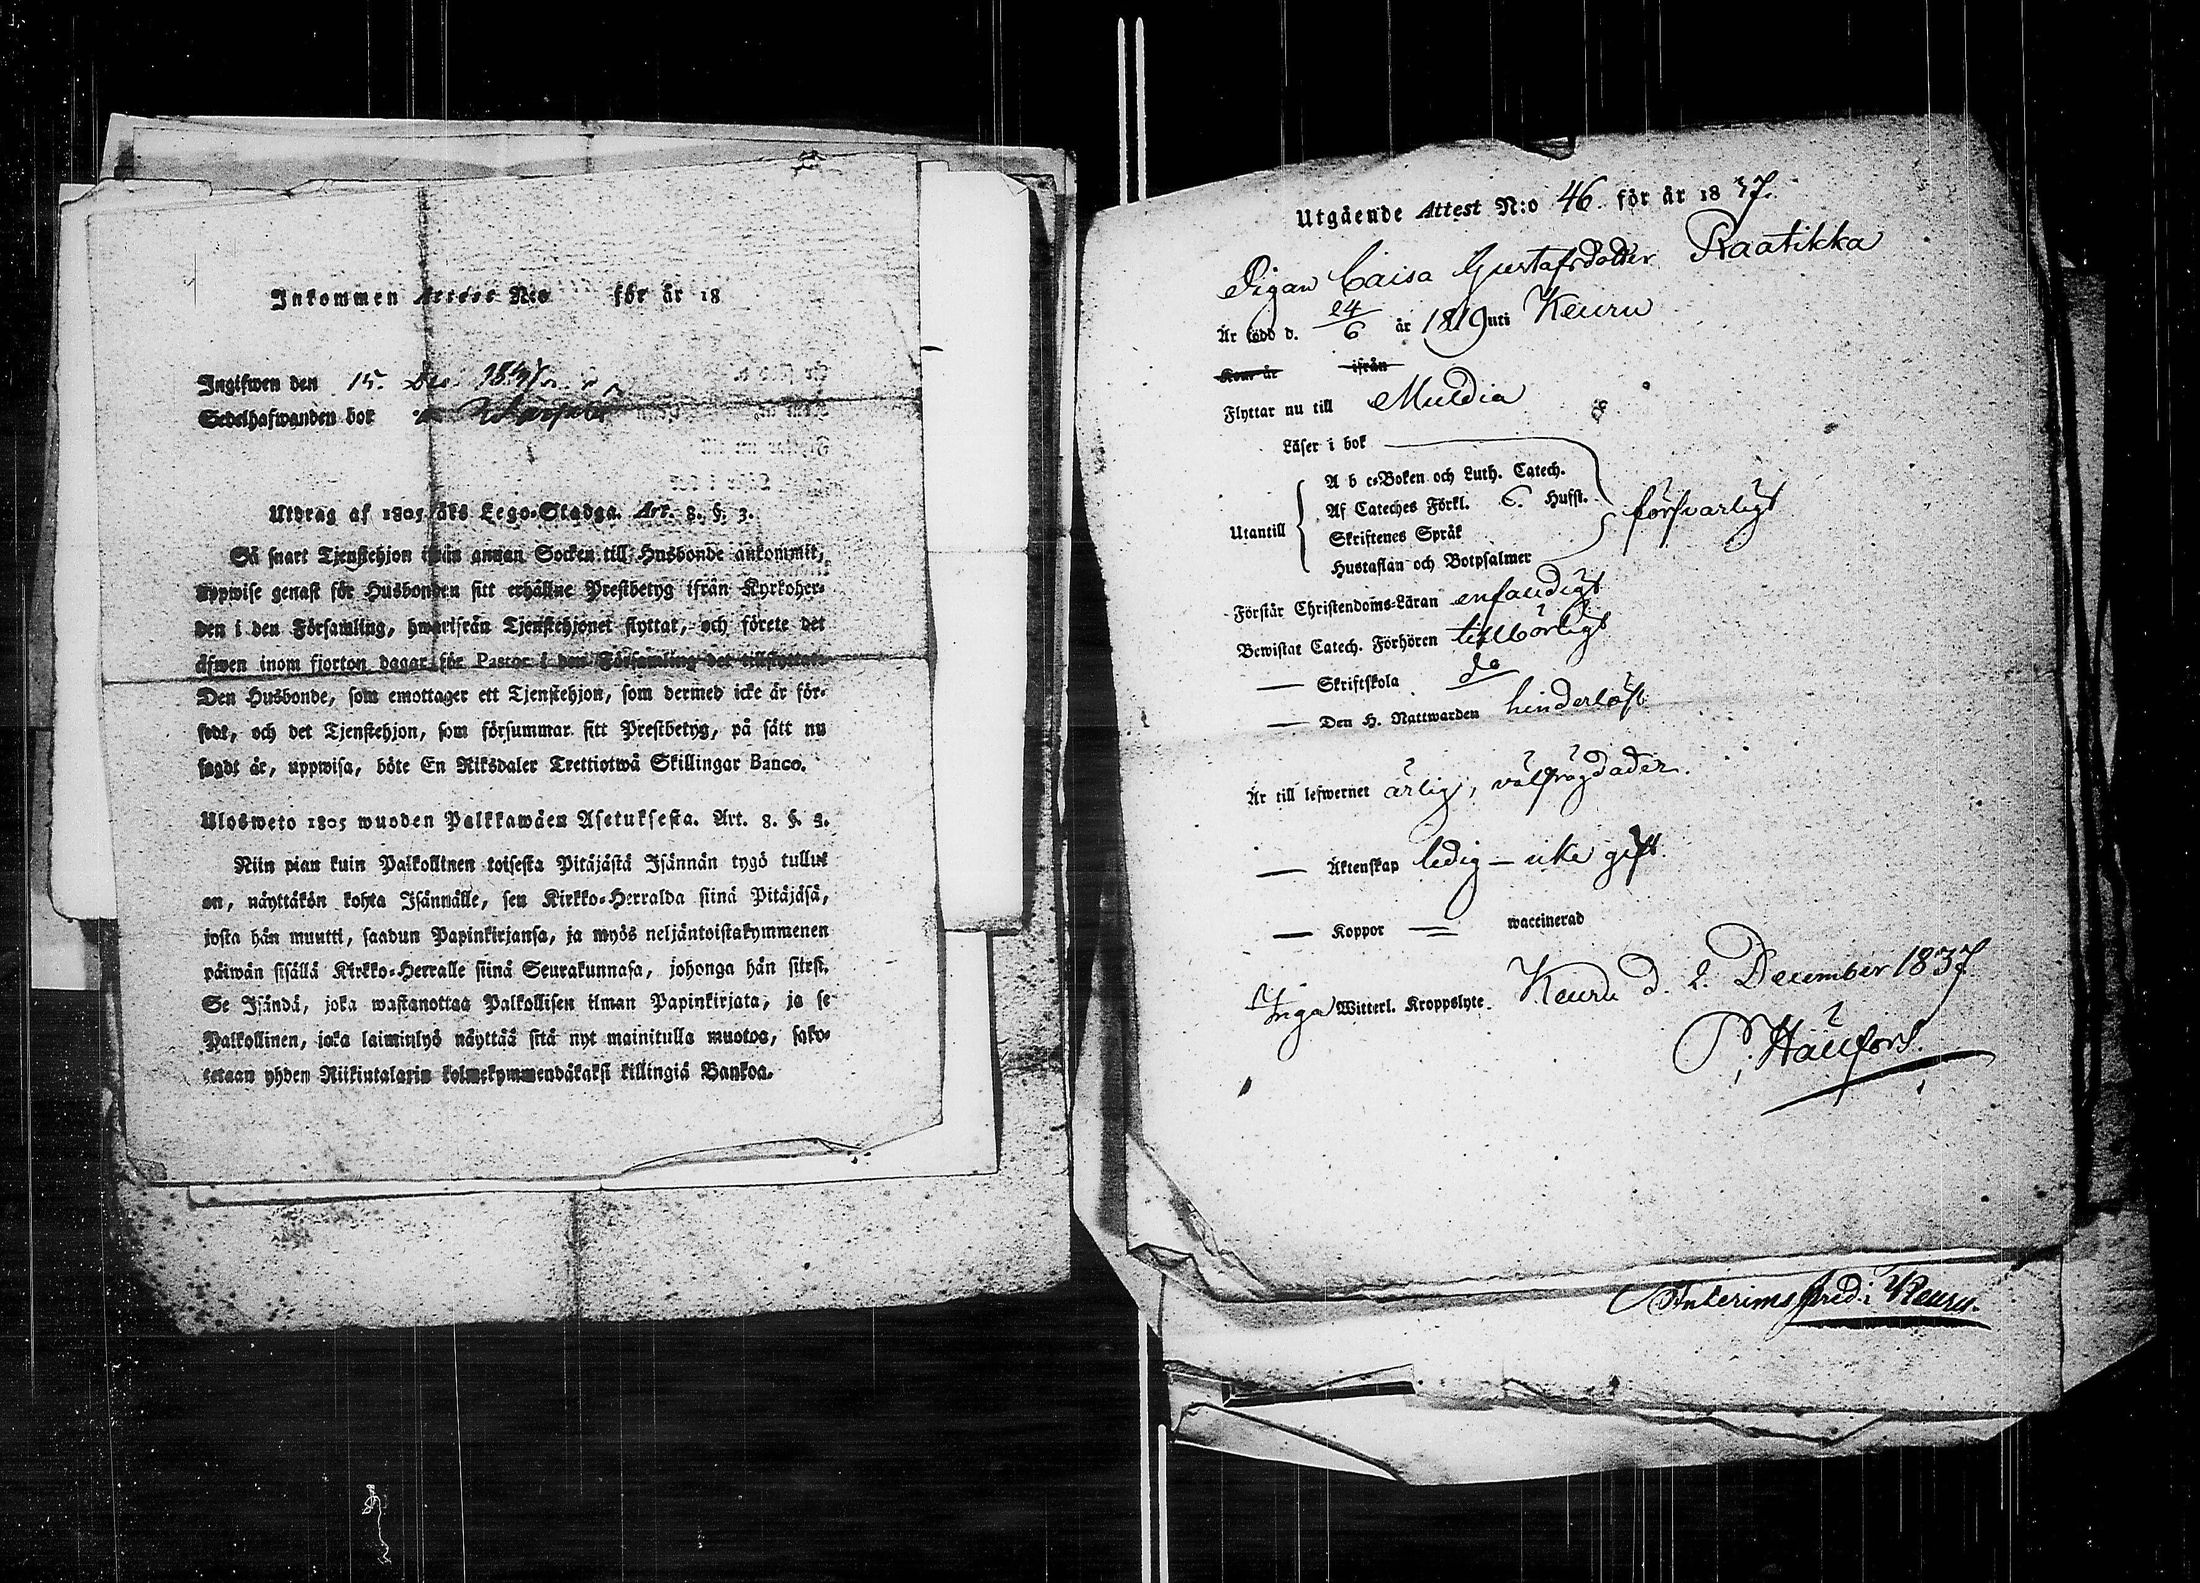 Inkommen Attest N:o för år 18
Ingifwen den 15. Dec. 1837
Sedelhafwanden bor
Utdrag af 1805 års Lego-Stadga. Art. 8. §. 3.
Så snart Tjenstehjon ifrån annan Socken till Husbonde ankommit,
uppwise genast för Husbonden sitt erhållne Prestbetyg ifrån Kyrkoher-
den i den Församling, hwarifrån Tjenstehjonet flyttat, och förete det
äfwen inom fjorton dagar för Pastor i den Församling det tillflyttat.
Den Husbonde, som emottager ett Tjenstehjon, som dermed icke är för-
sedt, och det Tjenstehjon, som försummar sitt Prestbetyg, på sätt nu
sagdt är, uppwisa, böte En Riksdaler Trettiotwå Skillingar Banco.
Ulosweto 1805 wuoden Palkkawäen Asetuksesta. Art. 8. §. 3.
Niin pian kuin Palkollinen toisesta Pitäjästä Isännän tygö tullut
on, näyttäkön kohta Isännälle, sen Kirkko-Herralda siinä Pitäjäsä,
josta hän muutti, saadun Papinkirjansa, ja myös neljäntoistakymmenen
päiwän sisällä Kirkko-Herralle siinä Seurakunnasa, johonga hän siirst.
Se Isändä, joka wastanottaa Palkollisen ilman Papinkirjata, ja se
Palkollinen, joka laiminlyö näyttää sitä nyt mainitulla muotoa, sako-
tetaan yhden Riikintalarin kolmekymmendäkaksi killingiä Bankoa.
Utgående Attest N:o 46. för år 1837.
Pigan Caisa Gustafsdotter Raatikka
Är född d. 24/6 år 1819 uti Keuru
Kom år ifrån
Flyttar nu till Muldia
Läser i bok
A b c-Boken och Luth. Catech.
Af Cateches Förkl. 6. Hufst.
Utantill försvarligt
Skriftenes Språk
Hustaflan och Botpsalmer
Förstår Christendoms-Läran enfaldigt
Bewistat Catech. Förhören tillbörligt
— Skriftskola do
— Den H. Nattwarden hinderlöst
Är till lefwernet ärlig, välfrägdader.
— Äktenskap ledig — icke gift.
— Koppor = waccinerad
Inga Witterl. Kroppslyte. Keuru d. 2. December 1837.
P. Hällfors.
Interims Pred: i Keuru.